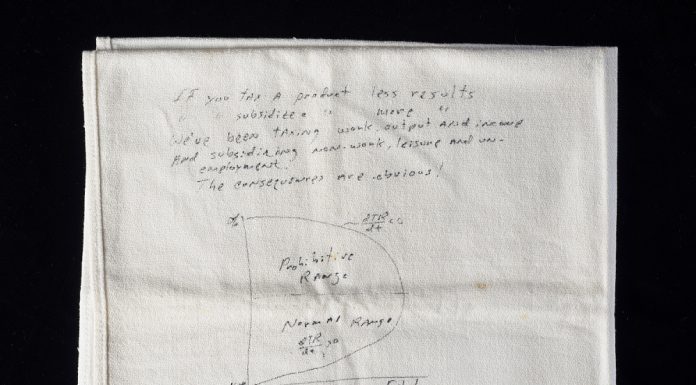 If you tax a product less results
" " subsidize " more "
We've been taxing work, output and income
and subsidizing non-work, leisure and un-
employment.
The consequences are obvious!
dTR/dt < 0
Prohibitive
Range
Normal Range
dTR/dt > 0